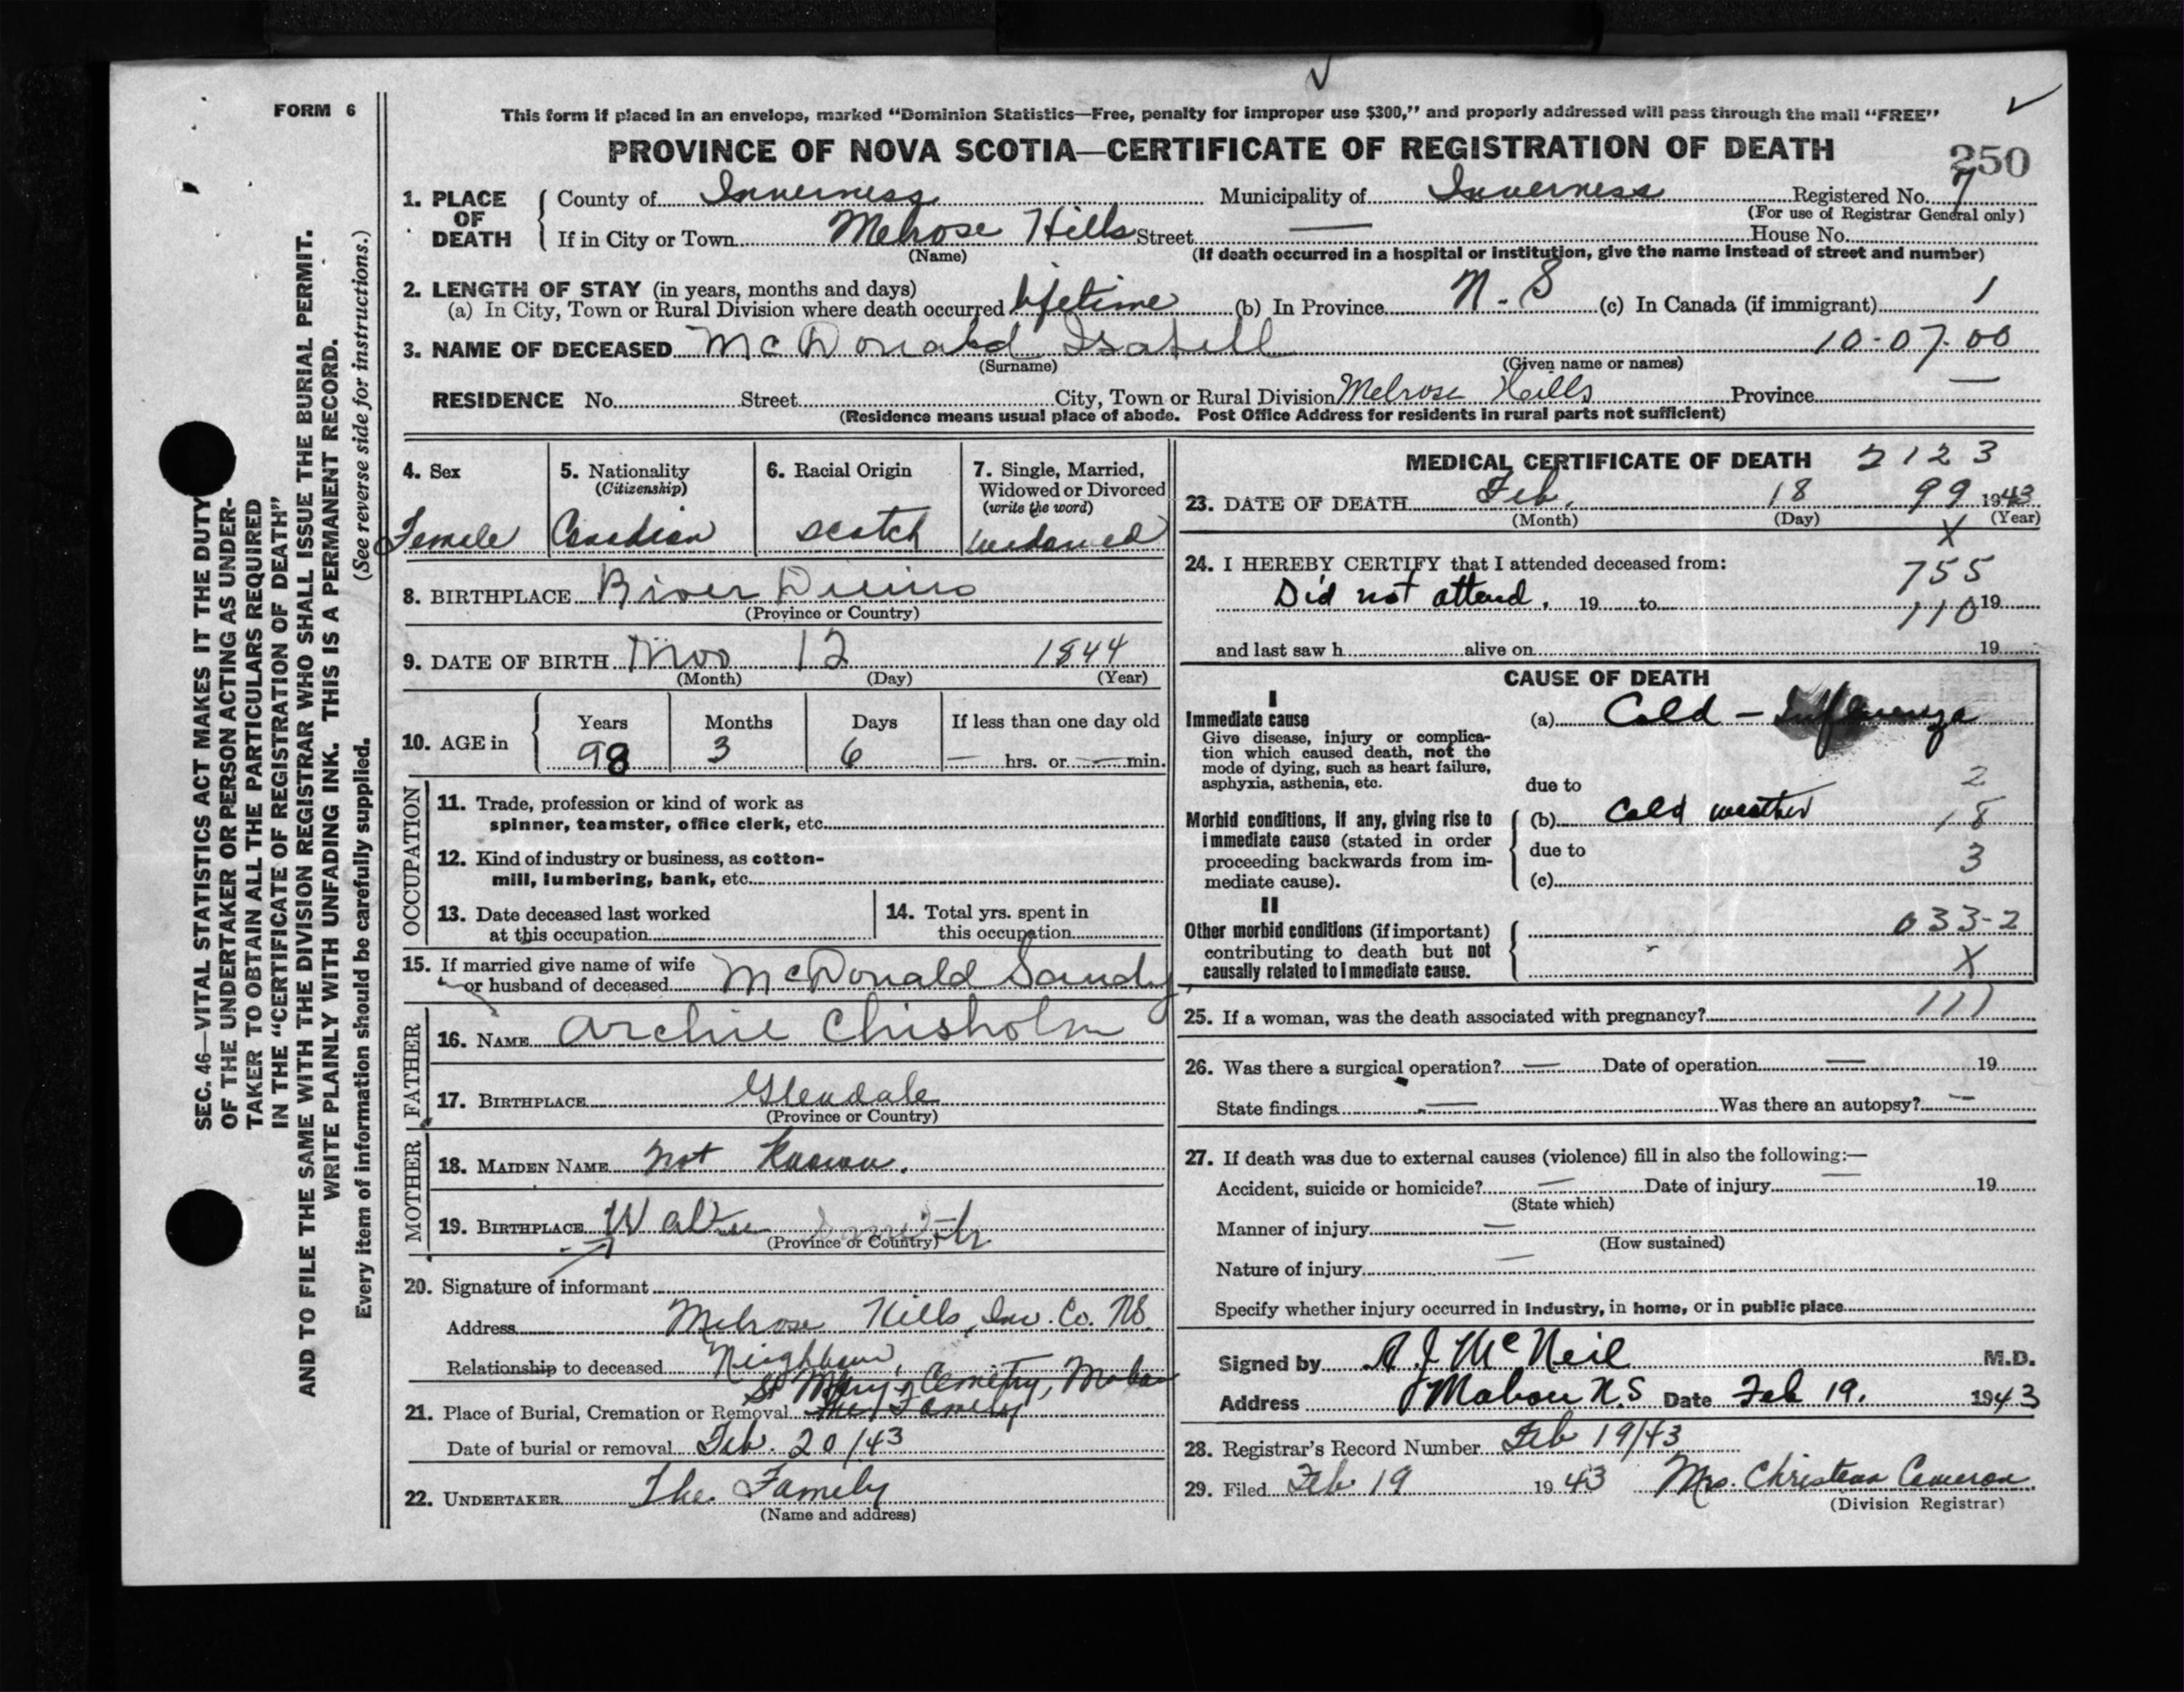 FORM 6
This form if placed in an envelope, marked "Dominion Statistics—Free, penalty for improper use $300," and properly addressed will pass through the mail "FREE"
PROVINCE OF NOVA SCOTIA—CERTIFICATE OF REGISTRATION OF DEATH
250
1. PLACE OF DEATH
County of Inverness Municipality of Inverness Registered No. 7
(For use of Registrar General only)
If in City or Town Melrose Hills Street — House No.
(Name) (If death occurred in a hospital or institution, give the name instead of street and number)
2. LENGTH OF STAY (in years, months and days)
(a) In City, Town or Rural Division where death occurred lifetime (b) In Province N. S (c) In Canada (if immigrant) 1
3. NAME OF DECEASED McDonald Isabell 10-07-00
(Surname) (Given name or names)
RESIDENCE No. Street City, Town or Rural Division Melrose Hills Province —
(Residence means usual place of abode. Post Office Address for residents in rural parts not sufficient)
4. Sex
Female
5. Nationality
(Citizenship)
Canadian
6. Racial Origin
scotch
7. Single, Married,
Widowed or Divorced
(write the word)
widowed
8. BIRTHPLACE River Denis
(Province or Country)
9. DATE OF BIRTH Nov 12 1844
(Month) (Day) (Year)
10. AGE in
Years Months Days If less than one day old
98 3 6 — hrs. or — min.
OCCUPATION
11. Trade, profession or kind of work as
spinner, teamster, office clerk, etc.
12. Kind of industry or business, as cotton-
mill, lumbering, bank, etc.
13. Date deceased last worked
at this occupation
14. Total yrs. spent in
this occupation
15. If married give name of wife
or husband of deceased McDonald Sandy
FATHER
16. NAME Archie Chisholm
17. BIRTHPLACE Glendale
(Province or Country)
MOTHER
18. MAIDEN NAME not Known.
19. BIRTHPLACE Walter
(Province or Country)
20. Signature of informant
Address Melrose Hills, Inv. Co. NS.
Relationship to deceased Neighbour,
St Mary's Cemetry, Mabou
21. Place of Burial, Cremation or Removal The Family
Date of burial or removal Feb. 20/43
22. UNDERTAKER The Family
(Name and address)
MEDICAL CERTIFICATE OF DEATH 2123
23. DATE OF DEATH Feb. 18 99 1943
(Month) (Day) X (Year)
24. I HEREBY CERTIFY that I attended deceased from: 755
Did not attend. 19 to 110 19
and last saw h alive on 19
CAUSE OF DEATH
I
Immediate cause
Give disease, injury or complica-
tion which caused death, not the
mode of dying, such as heart failure,
asphyxia, asthenia, etc.
(a) Cold — Influenza
due to 2
Morbid conditions, if any, giving rise to
immediate cause (stated in order
proceeding backwards from im-
mediate cause).
(b) Cold weather 18
due to 3
(c)
II
Other morbid conditions (if important)
contributing to death but not
causally related to immediate cause.
033-2
X
25. If a woman, was the death associated with pregnancy? 111
26. Was there a surgical operation? — Date of operation — 19
State findings — Was there an autopsy? —
27. If death was due to external causes (violence) fill in also the following:—
Accident, suicide or homicide? — Date of injury — 19
(State which)
Manner of injury —
(How sustained)
Nature of injury —
Specify whether injury occurred in industry, in home, or in public place
Signed by A J McNeil M.D.
Address Mabou N.S Date Feb 19. 1943
28. Registrar's Record Number Feb 19/43
29. Filed Feb 19 1943 Mrs. Christena Cameron
(Division Registrar)
SEC. 46—VITAL STATISTICS ACT MAKES IT THE DUTY
OF THE UNDERTAKER OR PERSON ACTING AS UNDER-
TAKER TO OBTAIN ALL THE PARTICULARS REQUIRED
IN THE "CERTIFICATE OF REGISTRATION OF DEATH"
AND TO FILE THE SAME WITH THE DIVISION REGISTRAR WHO SHALL ISSUE THE BURIAL PERMIT.
WRITE PLAINLY WITH UNFADING INK. THIS IS A PERMANENT RECORD.
Every item of information should be carefully supplied. (See reverse side for instructions.)